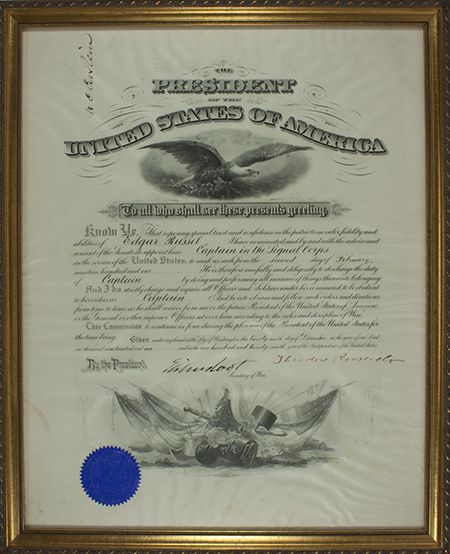 THE
PRESIDENT
OF THE
UNITED STATES OF AMERICA
To all who shall see these presents greeting:
Know Ye, That reposing special trust and confidence in the patriotism, valor, fidelity and
abilities of Edgar Russel I have nominated and by and with the advice and
consent of the Senate do appoint him Captain in the Signal Corps
in the service of the United States: to rank as such from the second day of February
nineteen hundred and one He is therefore carefully and diligently to discharge the duty
of Captain by doing and performing all manner of things thereunto belonging.
And I do strictly charge and require all Officers and Soldiers under his command to be obedient
to his orders as Captain And he is to observe and follow such orders and directions
from time to time as he shall receive from me or the future President of the United States of America,
or the General or other Superior Officers set over him according to the rules and discipline of War.
This Commission to continue in force during the pleasure of the President of the United States for
the time being.
Given under my hand at the City of Washington, the twenty sixth day of in the year of our Lord
one thousand nine hundred and one, and in the one hundred and twenty sixth year of the Independence of the United States.
By the President:
Theodore Roosevelt
Elihu Root
Secretary of War.